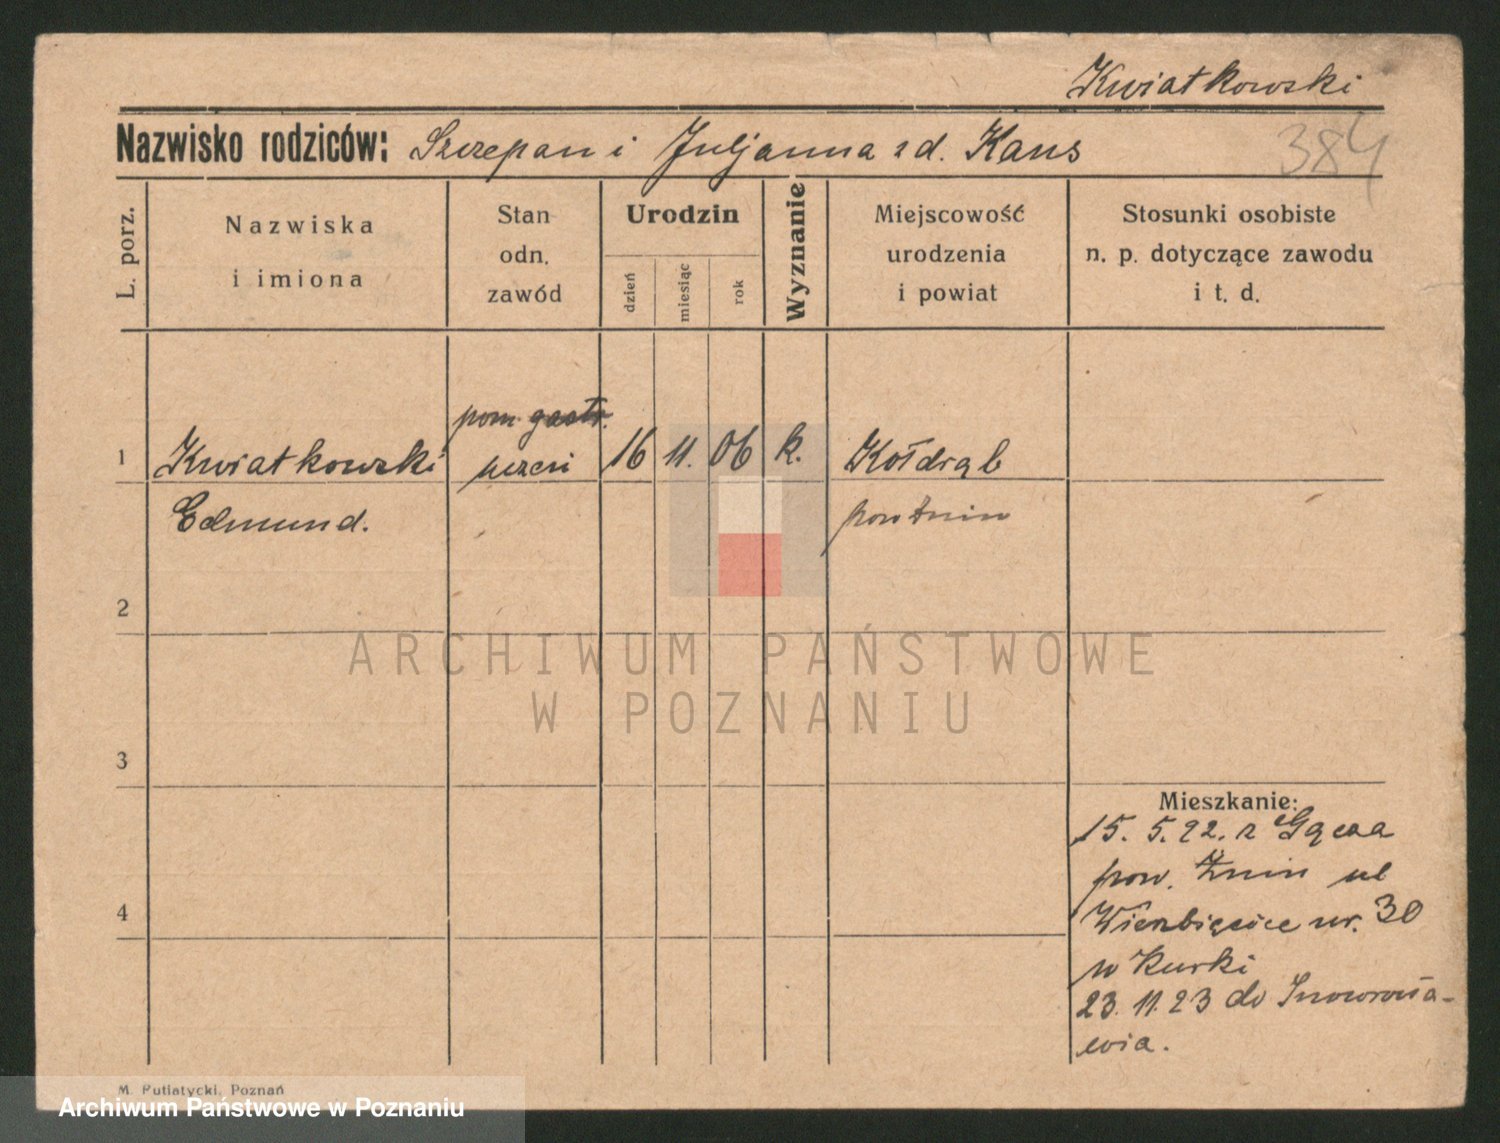 Kwiatkowski
Nazwisko rodziców: Szczepan i Juljanna z d. Kaus
384
L. porz.
Nazwiska
i imiona
Stan
odn.
zawód
Urodzin
dzień
miesiąc
rok
Wyznanie
Miejscowość
urodzenia
i powiat
Stosunki osobiste
n. p. dotyczące zawodu
i t. d.
pom. gastr.
1 Kwiatkowski uczeń 16 11. 06 k. Kołdrąb
Edmund. pow Żnin
2
ARCHIWUM PAŃSTWOWE
W POZNANIU
3
Mieszkanie:
15. 5. 22. z Gącza
pow. Żnin ul
4
Wierzbięcice nr. 30
u Kurki
23. 11. 23 do Inowrocła-
wia.
M. Putiatycki, Poznań
Archiwum Państwowe w Poznaniu